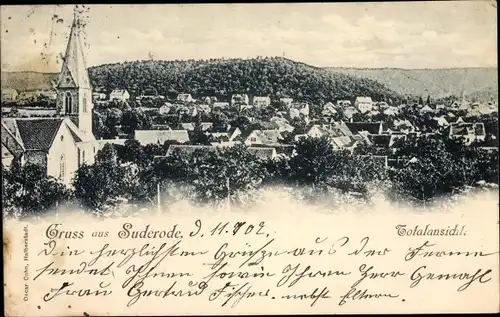 Gruss aus Suderode. d. 11.7.02.
Totalansicht.
Die herzlichsten Grüße aus der Ferne
sendet Ihnen sowie Ihrem Herr Gemahl
Frau Gertrud Fischer nebst Eltern.
Oscar Cohn, Halberstadt.